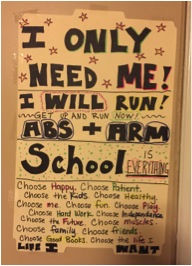 I ONLY
NEED ME!
I WILL RUN!
GET UP AND RUN NOW!
ABS + ARM
School IS EVERYTHING
Choose Happy. Choose Patient.
Choose the Kids. Choose Healthy.
Choose me. Choose Fun. Choose Play.
Choose Hard Work. Choose Independence
Choose the Future. Choose muscles
Choose family. Choose friends
Choose Good Books. Choose the life I
LIFE I WANT